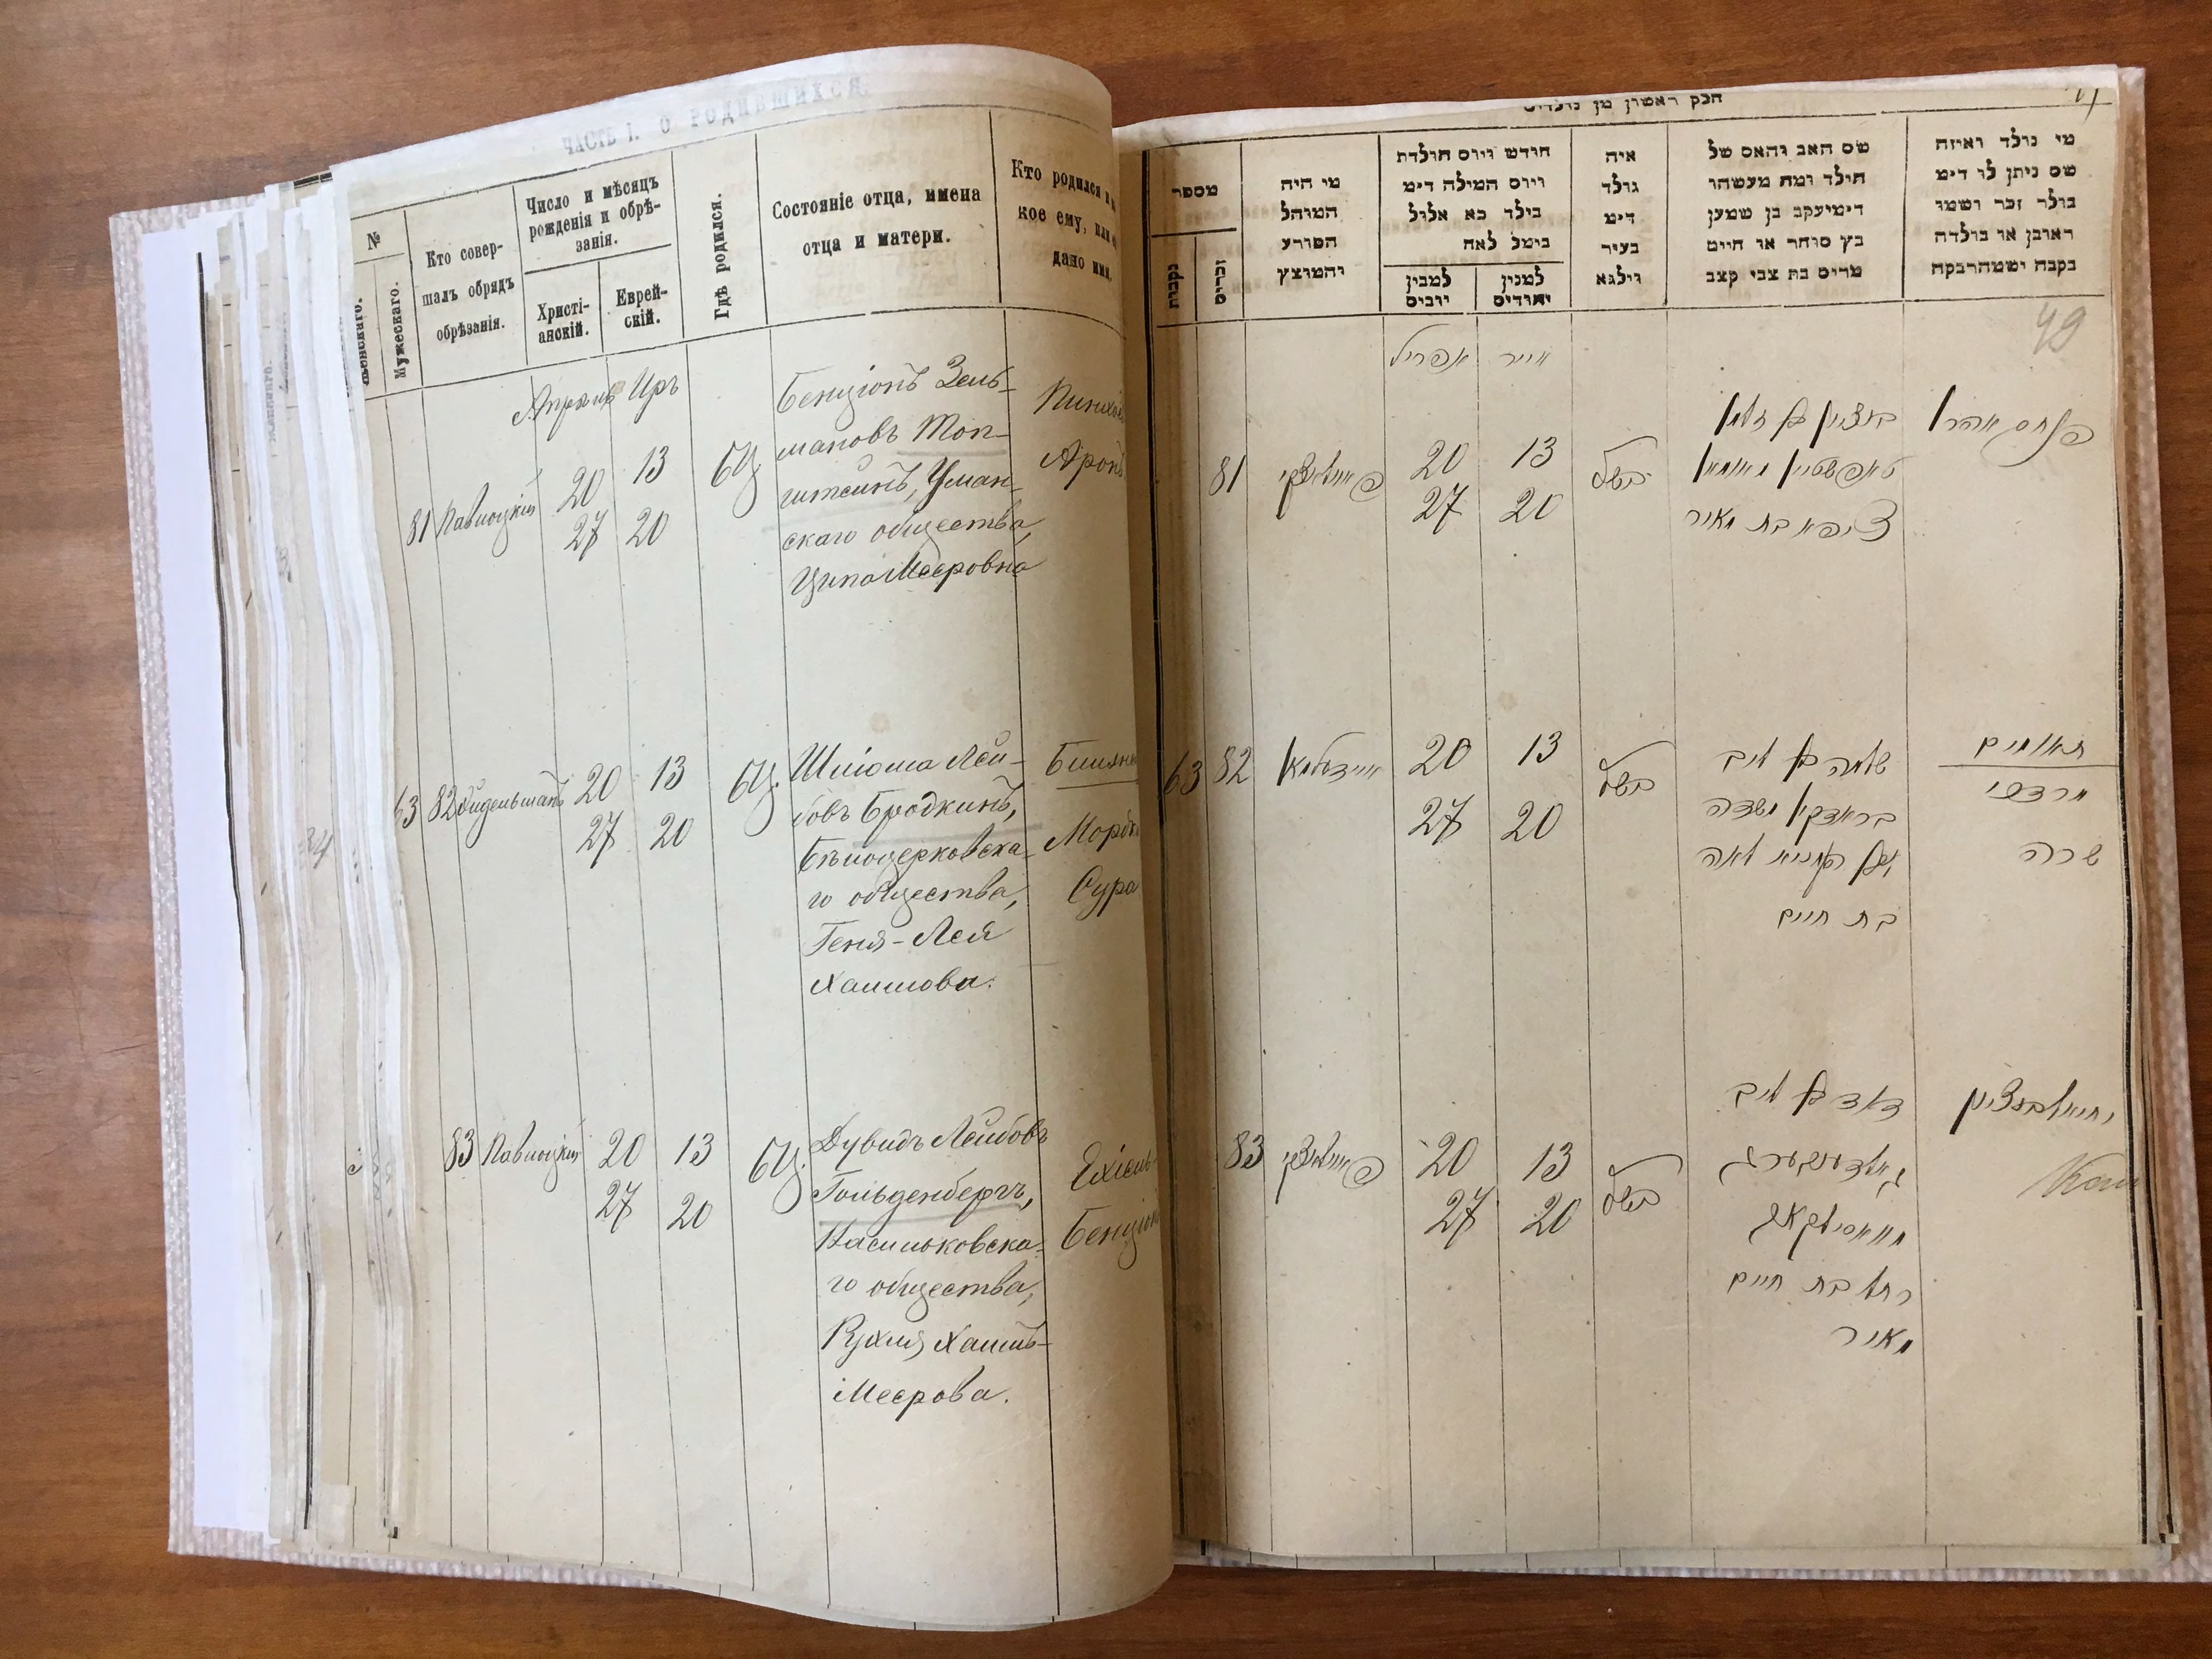 ЧАСТЬ I. О РОДИВШИХСЯ.
№
Женскаго.
Мужескаго.
Кто совер-
шалъ обрядъ
обрѣзанія.
Число и мѣсяцъ
рожденія и обрѣ-
занія.
Христі-
анскій.
Еврей-
скій.
Гдѣ родился.
Состояніе отца, имена
отца и матери.
Кто родился и
кое ему, или
дано имя.
Апрель Иръ
81 Павлоцкій 20 13 БЦ
27 20
Бенціонъ Зель-
мановъ Топ-
штейнъ, Уман-
скаго общества,
Ципа Мееровна
Пинхос
Аронъ
63 82 Айдельманъ 20 13 БЦ.
27 20
Шліома Лей-
бовъ Бродкинъ,
Бѣлоцерковска-
го общества,
Геня-Лея
Хаимова.
Близне
Мордк
Сура
83 Павлоцкій 20 13 БЦ.
27 20
Дувидъ Лейбовъ
Гольденбергъ,
Васильковска-
го общества,
Рухля Хаимъ-
Меерова.
Ехіель-
Бенціон
חלק ראשון מן נולדים
מספר
נקבות
זכרים
מי היה
המוהל
הפורע
והמוצץ
חודש ויום הולדת
ויום המילה דימ
בילד כא אלול
בימל לאח
למנין
יוביס
למנין
יהודים
איה
נולד
דימ
בעיר
ווילנא
שם האב והאם של
הילד ומה מעשהו
דימיעקב בן שמען
בץ סוחר או חיים
מרים בת צבי קצב
מי נולד ואיזה
שם ניתן לו דימ
בולר זכר ושמו
ראובן או בולדה
נקבה ושמהרבקה
49
אפריל אייר
81 פאוולאצקי 20 13
27 20
בנציון בן זלמן
טאפשטיין מאומאן
ציפא בת מאיר
פנחס אהרן
63 82 איידעלמאן 20 13
27 20
שלמה בן ליב
בראדקין משדה
לבן העניא לאה
בת חיים
תאומים
מרדכי
שרה
83 פאוולאצקי 20 13
27 20
דוד בן ליב
גאלדענבערג
וואסילקאוו
רחל בת חיים
מאיר
יחיאל בנציון